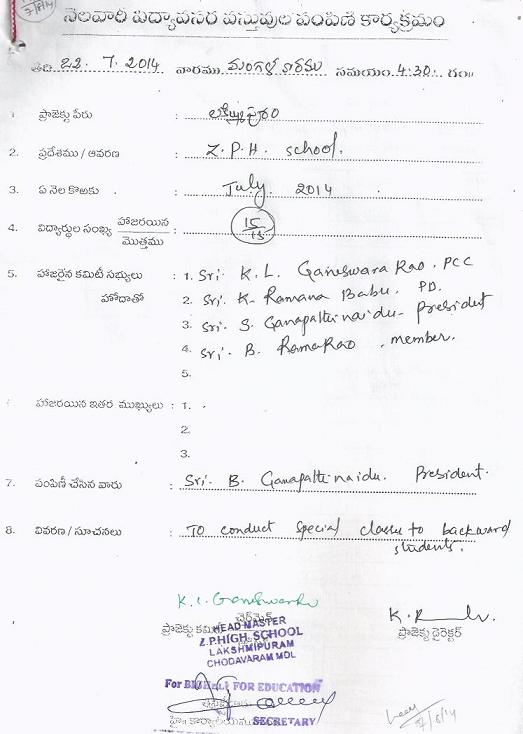 7/8/14
నెలవారి విద్యావసర వస్తువుల పంపిణి కార్యక్రమం
తేది 22. 7. 2014 వారము మంగళవారము సమయం 4:30 గం॥
1 ప్రాజెక్టు పేరు : లక్ష్మీపురం
2. ప్రదేశము / ఆవరణ : Z.P.H. School.
3. ఏ నెల కొఱకు : July. 2014
4. విద్యార్థుల సంఖ్య హాజరయిన / మొత్తము : 15/15
5. హాజరైన కమిటీ సభ్యులు : 1. Sri. K.L. Ganeswara Rao. PCC
హోదాతో 2. Sri. K. Ramana Babu. PD.
3. Sri. S. Ganapathinaidu - President
4. Sri. B. Rama Rao . member.
5.
హాజరయిన ఇతర ముఖ్యులు : 1.
2.
3.
7. పంపిణీ చేసిన వారు : Sri. B. Ganapathinaidu. President.
8. వివరణ / సూచనలు : To conduct special classes to backward
students.
K. L. Ganeswara
చైర్మెన్
ప్రాజెక్టు కమిటీ
ప్రాజెక్టు డైరెక్టర్
HEAD MASTER
Z.P.HIGH SCHOOL
LAKSHMIPURAM
CHODAVARAM MDL
FOR EDUCATION
హై॥ కార్యాలయము
SECRETARY